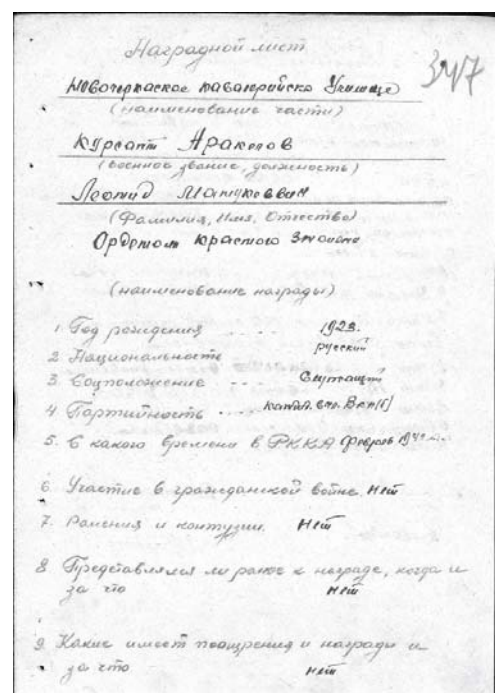 Наградной лист
347
Новочеркасское кавалерийско Училище
(наименование части)
Курсант Аракелов
(военное звание, должность)
Леонид
(Фамилия, Имя, Отчество)
Орденом Красного Знамени
(наименование награды)
1. Год рождения .... 1923.
2 Национальность русский
3. Соцположение .... Служащий
4 Партийность .... канд. вкп(б)
5. С какого времени в РККА февраль
6. Участие в гражданской войне. Нет
7. Ранения и контузии. Нет
8. Представлялся ли ранее к награде, когда и
за что нет
9. Какие имеет поощрения и награды и
за что нет